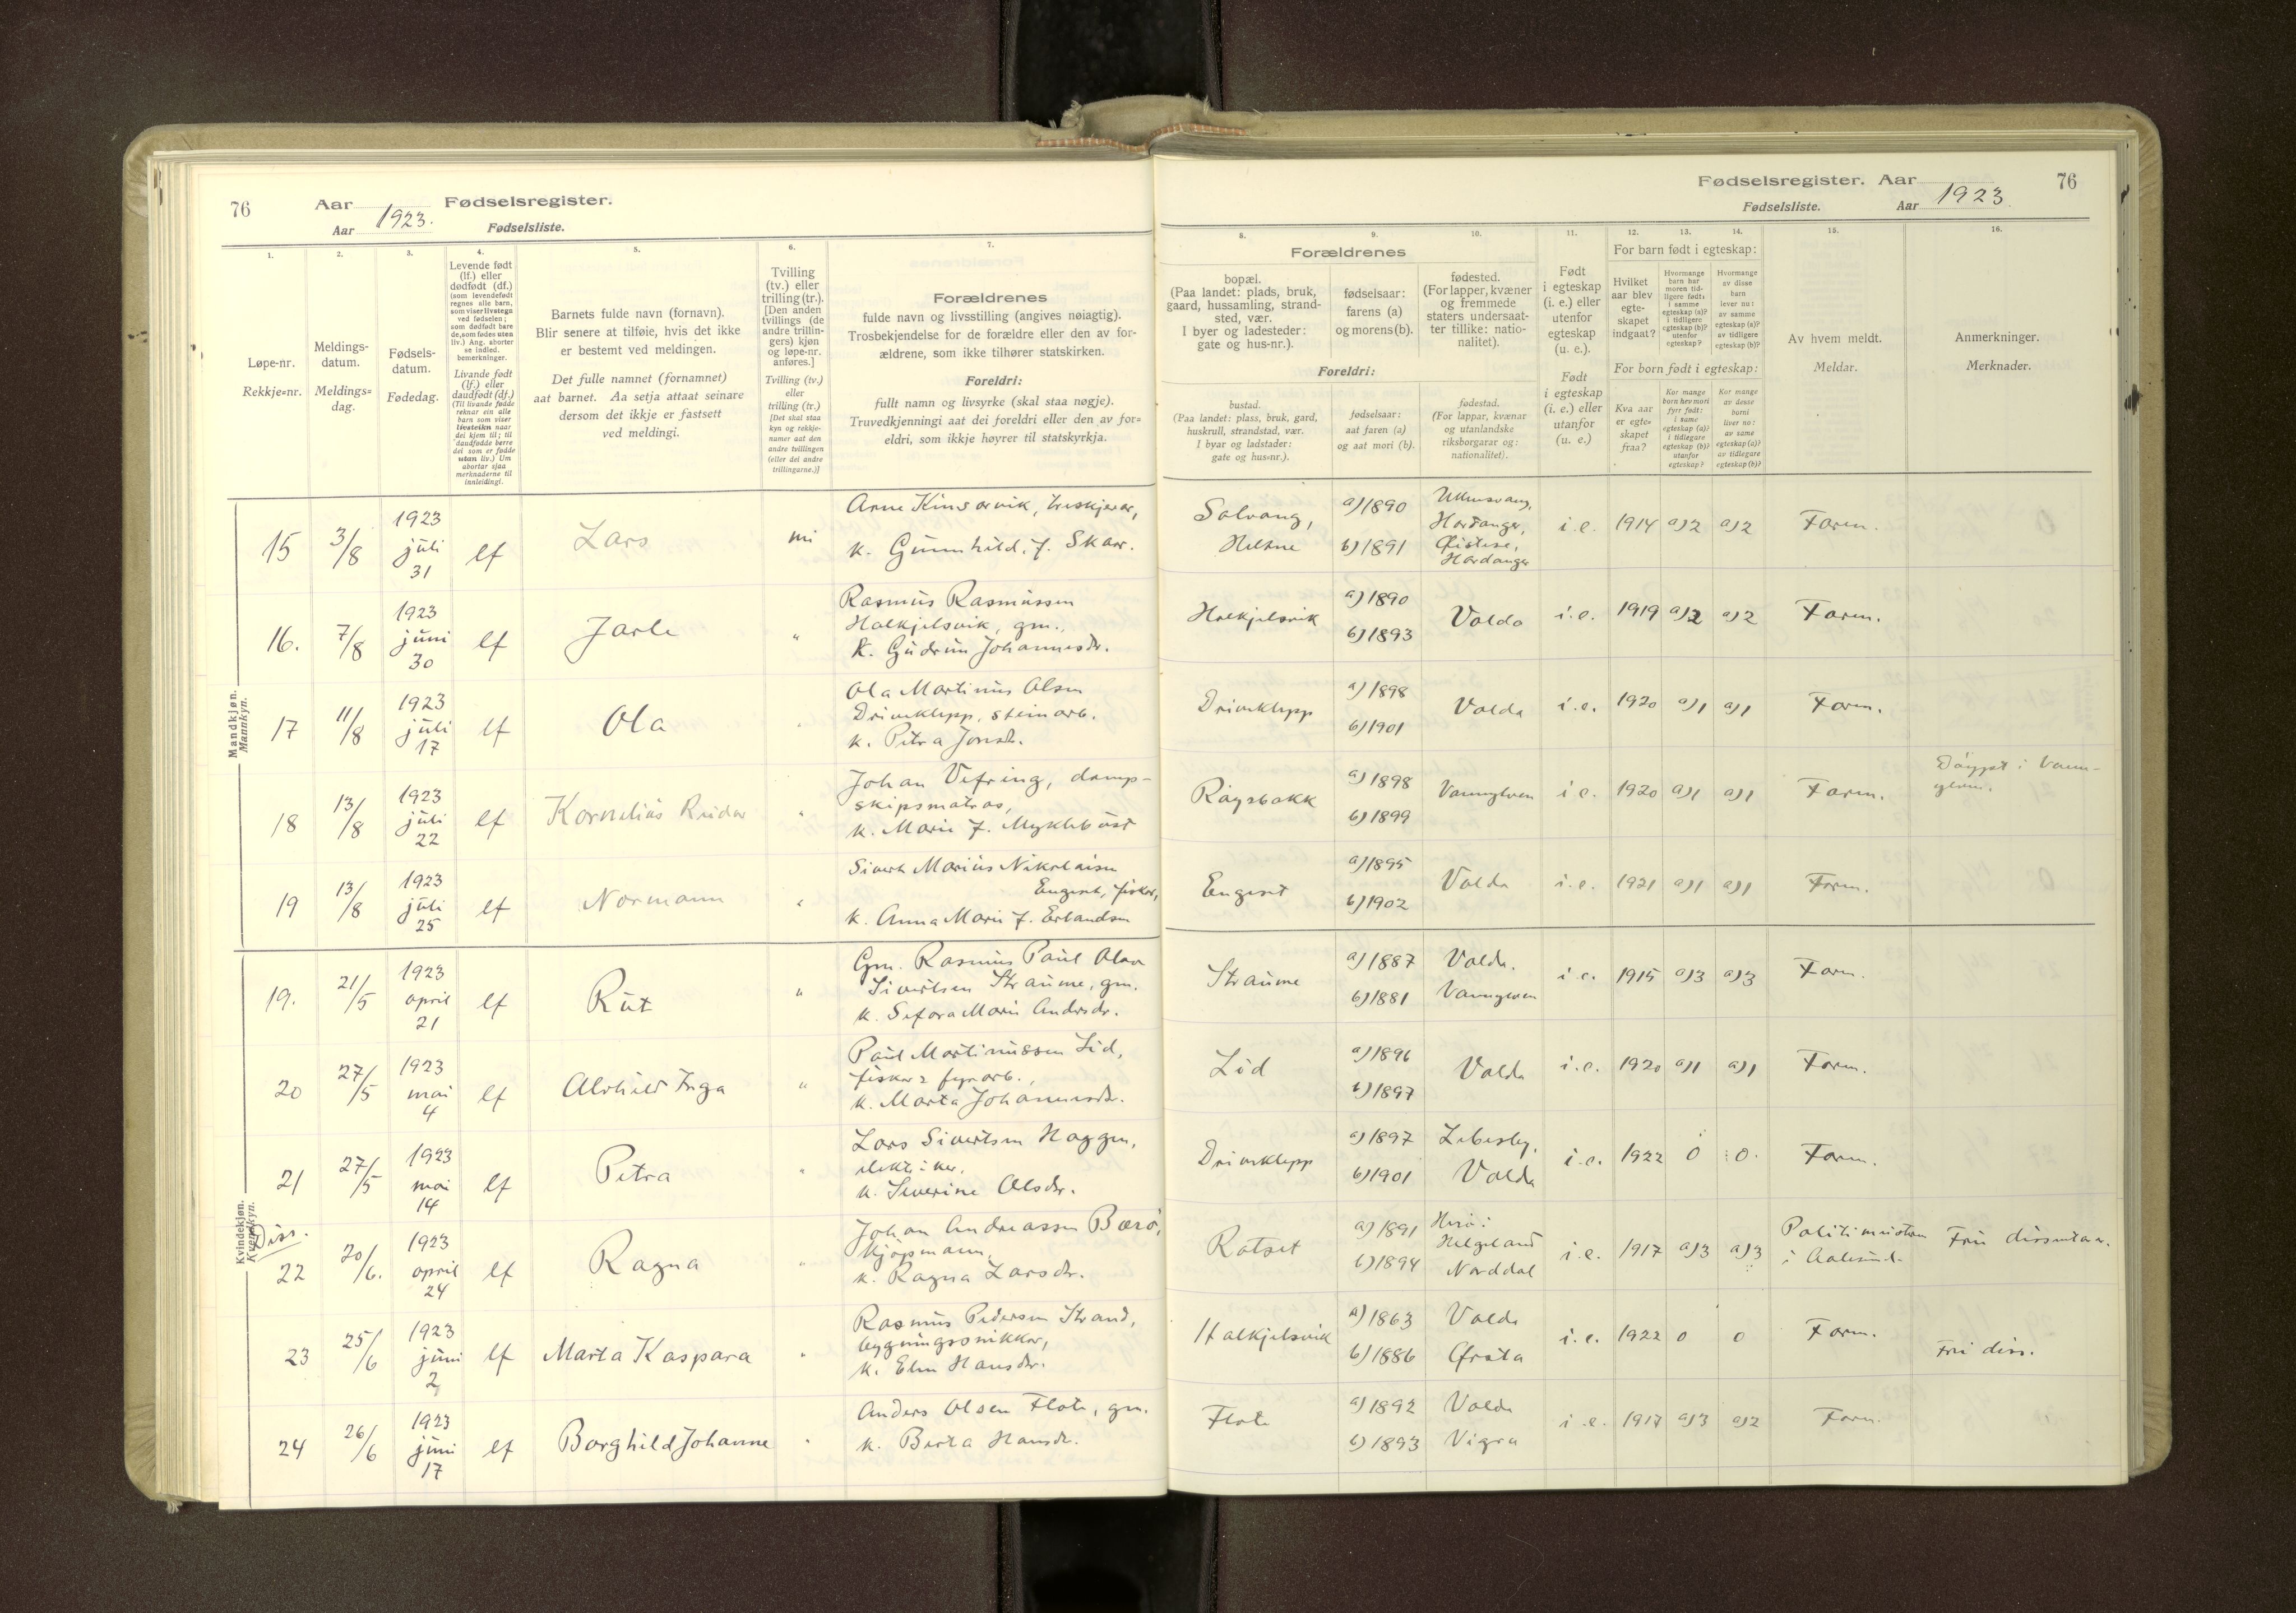 76
Aar 1923. Fødselsregister.
Aar Fødselsliste.
Fødselsregister. Aar 1923 76
Fødselsliste. Aar
1. 2. 3. 4. 5. 6. 7.
Løpe-nr.
Rekkje-nr.
Meldings-
datum.
Meldings-
dag.
Fødsels-
datum.
Fødedag.
Levende født
(lf.) eller
dødfødt (df.)
(som levendefødt
regnes alle barn,
som viser livstegn
ved fødselen;
som dødfødt bare
de, som fødes uten
liv.) Ang. aborter
se indled.
bemerkninger.
Livande født
(lf.) eller
daudfødt (df.)
(Til livande fødde
reknar ein alle
barn som viser
livsteikn naar
dei kjem til; til
daudfødde berre
dei som er fødde
utan liv.) Um
abortar sjaa
merknaderne til
innleidingi.
Barnets fulde navn (fornavn).
Blir senere at tilføie, hvis det ikke
er bestemt ved meldingen.
Det fulle namnet (fornamnet)
aat barnet. Aa setja attaat seinare
dersom det ikkje er fastsett
ved meldingi.
Tvilling
(tv.) eller
trilling (tr.).
[Den anden
tvillings (de
andre trillin-
gers) kjøn
og løpe-nr.
anføres.]
Tvilling (tv.)
eller
trilling (tr.)
[Det skal staa
kyn og rekkje-
numer aat den
andre tvillingen
(eller dei andre
trillingarne.)]
Forældrenes
fulde navn og livsstilling (angives nøiagtig).
Trosbekjendelse for de forældre eller den av for-
ældrene, som ikke tilhører statskirken.
Foreldri:
fullt namn og livsyrke (skal staa nøgje).
Truvedkjenningi aat dei foreldri eller den av for-
eldri, som ikkje høyrer til statskyrkja.
8. 9. 10. 11. 12. 13. 14. 15. 16.
Forældrenes
bopæl.
(Paa landet: plads, bruk,
gaard, hussamling, strand-
sted, vær.
I byer og ladesteder:
gate og hus-nr.).
fødselsaar:
farens (a)
og morens (b).
fødested.
(For lapper, kvæner
og fremmede
staters undersaat-
ter tillike: natio-
nalitet).
Foreldri:
bustad.
(Paa landet: plass, bruk, gard,
huskrull, strandstad, vær.
I byar og ladstader:
gate og hus-nr.).
fødselsaar:
aat faren (a)
og aat mori (b).
fødestad.
(For lappar, kvænar
og utanlandske
riksborgarar og:
nationalitet).
Født
i egteskap
(i. e.) eller
utenfor
egteskap
(u. e.).
Født
i egteskap
(i. e.) eller
utanfor
(u. e.)
For barn født i egteskap:
Hvilket
aar blev
egte-
skapet
indgaat?
Hvormange
barn har
moren tid-
ligere født:
i samme
egteskap (a)?
i tidligere
egteskap (b)?
utenfor
egteskap?
Hvormange
av disse
barn
lever nu:
av samme
egteskap (a)?
av tidligere
egteskap (b)?
For born født i egteskap:
Kva aar
er egte-
skapet
fraa?
Kor mange
born hev mori
fyrr født:
i same
egteskap (a)?
i tidlegare
egteskap (b)?
utanfor
egteskap?
Kor mange
av desse
borni
liver no:
av same
egteskap (a)?
av tidlegare
egteskap (b)?
Av hvem meldt.
Meldar.
Anmerkninger.
Merknader.
Mandkjøn.
Mannkyn.
15 3/8 1923 juli 31 lf Lars
Arne Kinsarvik, treskjerar,
k. Gunnhild, f. Skaar.
Solvang, a) 1890 Ullensvang, Hardanger,
b) 1891 Øistese, Hardanger
i.e. 1914 a)2 a)2 Faren.
16. 7/8 1923 juni 30 lf Jarle "
Rasmus Rasmussen
Halkjelsvik, gm.,
k. Gudrun Johannesdr.
Halkjelsvik a) 1890 b) 1893 Volda i.e. 1919 a)2 a)2 Faren.
17 11/8 1923 juli 17 lf Ola "
Ola Martinus Olsen
Driveklepp, steinarb.
k. Petra Jonsdr.
Driveklepp a) 1898 b) 1901 Volda i.e. 1920 a)1 a)1 Faren.
18 13/8 1923 juli 22 lf Kornelius Reidar "
Johan Vefring, damp-
skipsmatros,
k. Marie f. Myklebust
a) 1898 b) 1899 Vannylven i.e. 1920 a)1 a)1 Faren.
Døypt i Vann-
ylven.
19 13/8 1923 juli 25 lf Normann "
Sivert Marius Nikolaisen
Engeset, fiskar,
k. Anna Marie f. Erlandsen
Engeset a) 1895 b) 1902 Volda i.e. 1921 a)1 a)1 Faren.
Kvindekjøn.
Kvendkyn.
19. 21/5 1923 april 21 lf Rut "
Gm. Rasmus Paul Olav
Sivertsen Straume, gm.
k. Sefora Marie Andrsdr.
Straume a) 1887 Volda. b) 1881 Vannylven i.e. 1915 a)3 a)3 Faren.
20 27/5 1923 mai 4 lf Alvhild Inga "
Paul Martinussen Lid,
fiskar & fyrarb.,
k. Marta Johannesdr.
Lid a) 1896 b) 1897 Volda i.e. 1920 a)1 a)1 Faren.
21 27/5 1923 mai 14 lf Petra "
Lars Sivertsen Haggen,
elektriker,
k. Severine Olsdr.
Driveklepp a) 1897 Lebesby, b) 1901 Volda i.e. 1922 0 0. Faren.
Diss.
22 20/6. 1923 april 24 lf Ragna "
Johan Andreassen Barø,
kjøpmann,
k. Ragna Larsdr.
Rotset a) 1891 Herø i Helgeland b) 1894 Norddal i.e. 1917 a)3 a)3
Politimeistren
i Aalesund.
Frie dissentarar.
23 25/6 1923 juni 2 lf Marta Kaspara "
Rasmus Pedersen Strand,
bygningssnikkar,
k. Elen Hansdr.
Halkjelsvik a) 1863 Volda b) 1886 Ørsta i.e. 1922 0 0 Faren.
Fri diss.
24 26/6 1923 juni 17 lf Borghild Johanne "
Anders Olsen Flote, gm.
k. Berta Hansdr.
Flote a) 1892 Volda b) 1893 Vigra i.e. 1917 a)3 a)2 Faren.